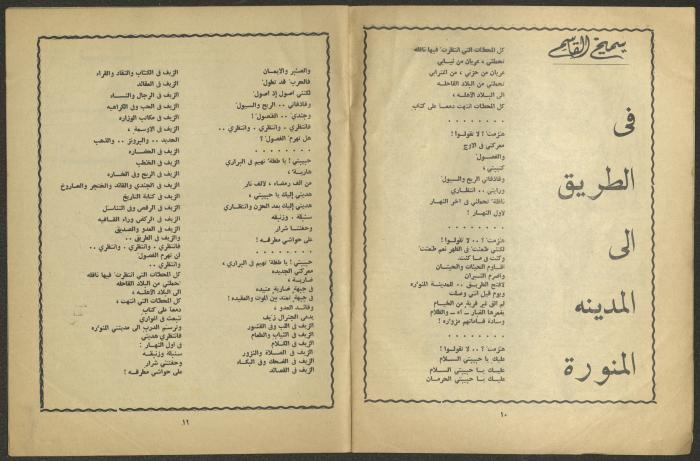 سميح القاسم
فى
الطريق
الى
المدينه
المنورة
كل المحطات التي انتظرت فيها نافله
تحطني ، عريان من ثيابي
عريان من حزني ، من اغترابي
تحطني من البلاد القاحله
الى البلاد الآهله ،
كل المحطات انتهت دمعا على كتاب
هزمت ؟ لا تقولوا !
معركتي في الاوج
والفصول
كتيبتي ،
وقاذفاتي الريح والسيول
ورايتي .. انتظاري
تحطني في آخر النهار
لاول النهار !
هزمت ؟ .. لا تقولوا !
لكنني طعنت في الظهر نعم طعنت
وكنت في ما كنت
اقاوم الحيتان
واضرم النيران
لافتح الطريق .. للمدينة المنوره
ويوم قيل انني وصلت
لم الق غير قرية من الخيام
يغمرها الغبار والظلام
وسادة هزمت ؟ .. لا تقولوا !
عليك يا حبيبتي السلام
عليك يا حبيبتي السلام
عليك يا حبيبتي الحرمان
١٠
والصبر والايمان
فالحرب قد تطول
لكنني اصول إذ اصول
وقاذفاتي .. الريح والسيول
وجندي .. الفصول !
فانتظري . وانتظري . وانتظري ..
هل تهزم الفصول ؟
حبيبتي ! يا طفلة تهيم في البراري
هاربة ،
من الف رمضاء ، لالف نار
هديتي إليك يا حبيبتي ،
هديتي إليك بعد الحزن وانتظاري
سنبلة . وزنبقه
وحفنتا شرار
على حواشي مطرقه !
حبيبتي ! يا طفلة تهيم في البراري ،
معركتي الجديده
ضارية ،
في جبهة ضارية عنيده
في جبهة تمتد بين الموت والعقيده !
وقائد العدو ،
يدعى الجنرال زيف
الزيف في اللب وفي القشور
الزيف في الثياب والطعام
الزيف في الكلام
الزيف في الصلاة والنزور
الزيف في الضحك وفي البكاء
الزيف في القصائد
الزيف في الكتاب والنقاد والقراء
الزيف في العقائد
الزيف في الرجال والنساء
الزيف في الحب وفي الكراهيه
الزيف في مكاتب الوزاره
الزيف في الاوسمة ،
الحديد .. والبرونز .. والذهب
الزيف في الحضاره
الزيف في الخطب
الزيف في الربح وفي الخساره
الزيف في الجندي والقائد والخنجر والصاروخ
الزيف في كتابة التاريخ
الزيف في الرقص وفي التناسل
الزيف في الركض وراء القافيه
الزيف في العدو والصديق
والزيف في الطريق ..
فانتظري . وانتظري . وانتظري ..
لن تهزم الفصول
وانتظري ..
كل المحطات التي انتظرت فيها نافله
تحطني من البلاد القاحله
الى البلاد الآهله ،
كل المحطات التي انتهت ،
دمعا على كتاب
تبعث في اغواري
وترسم الدرب الى مدينتي المنوره
فانتظري هديتي
في اول النهار :
سنبلة وزنبقه
وحفنتي شرار
على حواشي مطرقه !
١١